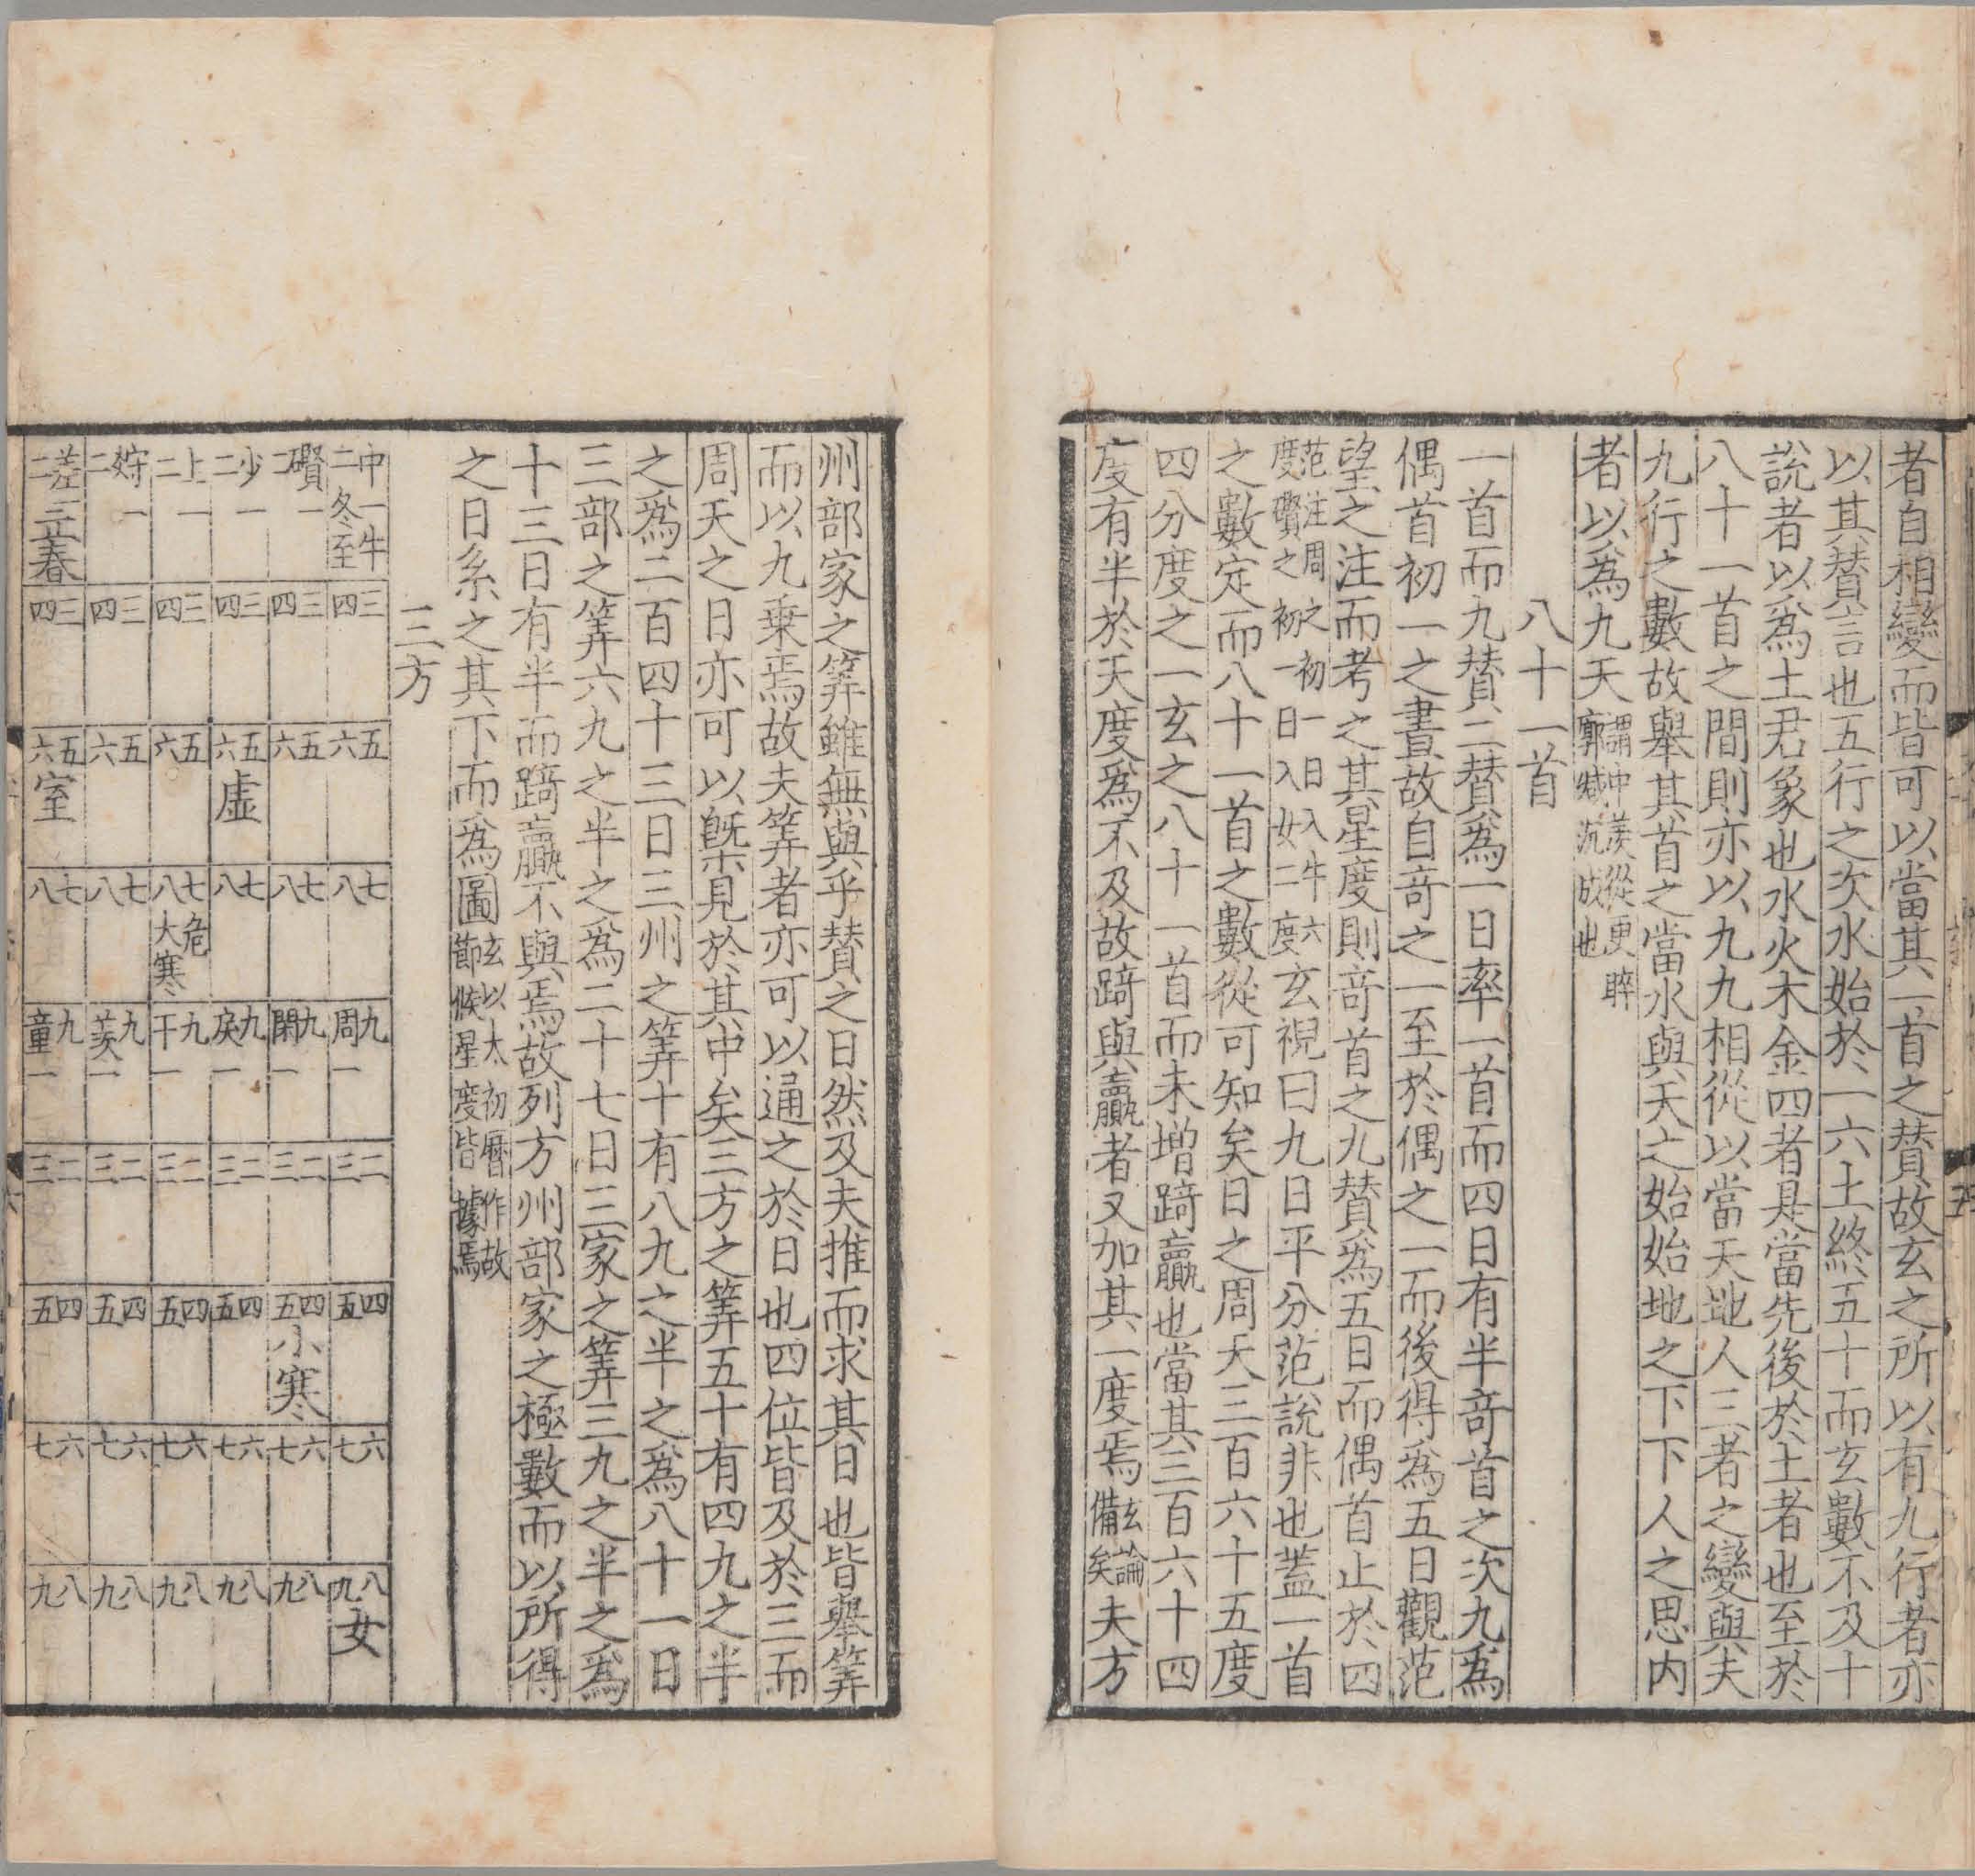 者自相變而皆可以當其一首之賛故玄之所以有九行者亦
以其賛言也五行之次水始於一六土終五十而玄數不及十
說者以爲土君象也水火木金四者具當先後於土者也至於
八十一首之間則亦以九九相從以當天地人三者之變與夫
九行之數故舉其首之當水與天之始始地之下下人之思内
者以爲九天謂中羨從更睟廓減沉成也
八十一首
一首而九賛二賛爲一日率一首而四日有半竒首之次九爲
偶首初一之晝故自竒之一至於偶之一而後得爲五日觀范
望之注而考之其星度則竒首之九賛爲五日而偶首止於四
范注周之初一日入牛六度礥之初一日入女二度玄視曰九日平分范說非也蓋一首
之數定而八十一首之數從可知矣日之周天三百六十五度
四分度之一玄之八十一首而未増踦贏也當其三百六十四
度有半於天度爲不及故踦與贏者又加其一度焉玄論備矣夫方
州部家之筭雖無與乎賛之日然及夫推而求其日也皆舉筭
而以九乗焉故夫筭者亦可以通之於日也四位皆及於三而
周天之日亦可以槩見於其中矣三方之筭五十有四九之半
之爲二百四十三日三州之筭十有八九之半之爲八十一日
三部之筭六九之半之爲二十七日三家之筭三九之半之爲
十三日有半而踦贏不與焉故列方州部家之極數而以所得
之日系之其下而爲圖玄以太初曆作故節候星度皆據焉
三方
中一牛二冬至 三四 五六 七八 九周一 二三 四五 六七 八九女
礥一二 三四 五六 七八 九閑一 二三 四五小寒 六七 八九
少一二 三四 五六虛 七八 九戾一 二三 四五 六七 八九
上一二 三四 五六 七八危大寒 九干一 二三 四五 六七 八九
狩一二 三四 五六 七八 九羨一 二三 四五 六七 八九
差一二立春 三四 五六室 七八 九童一 二三 四五 六七 八九